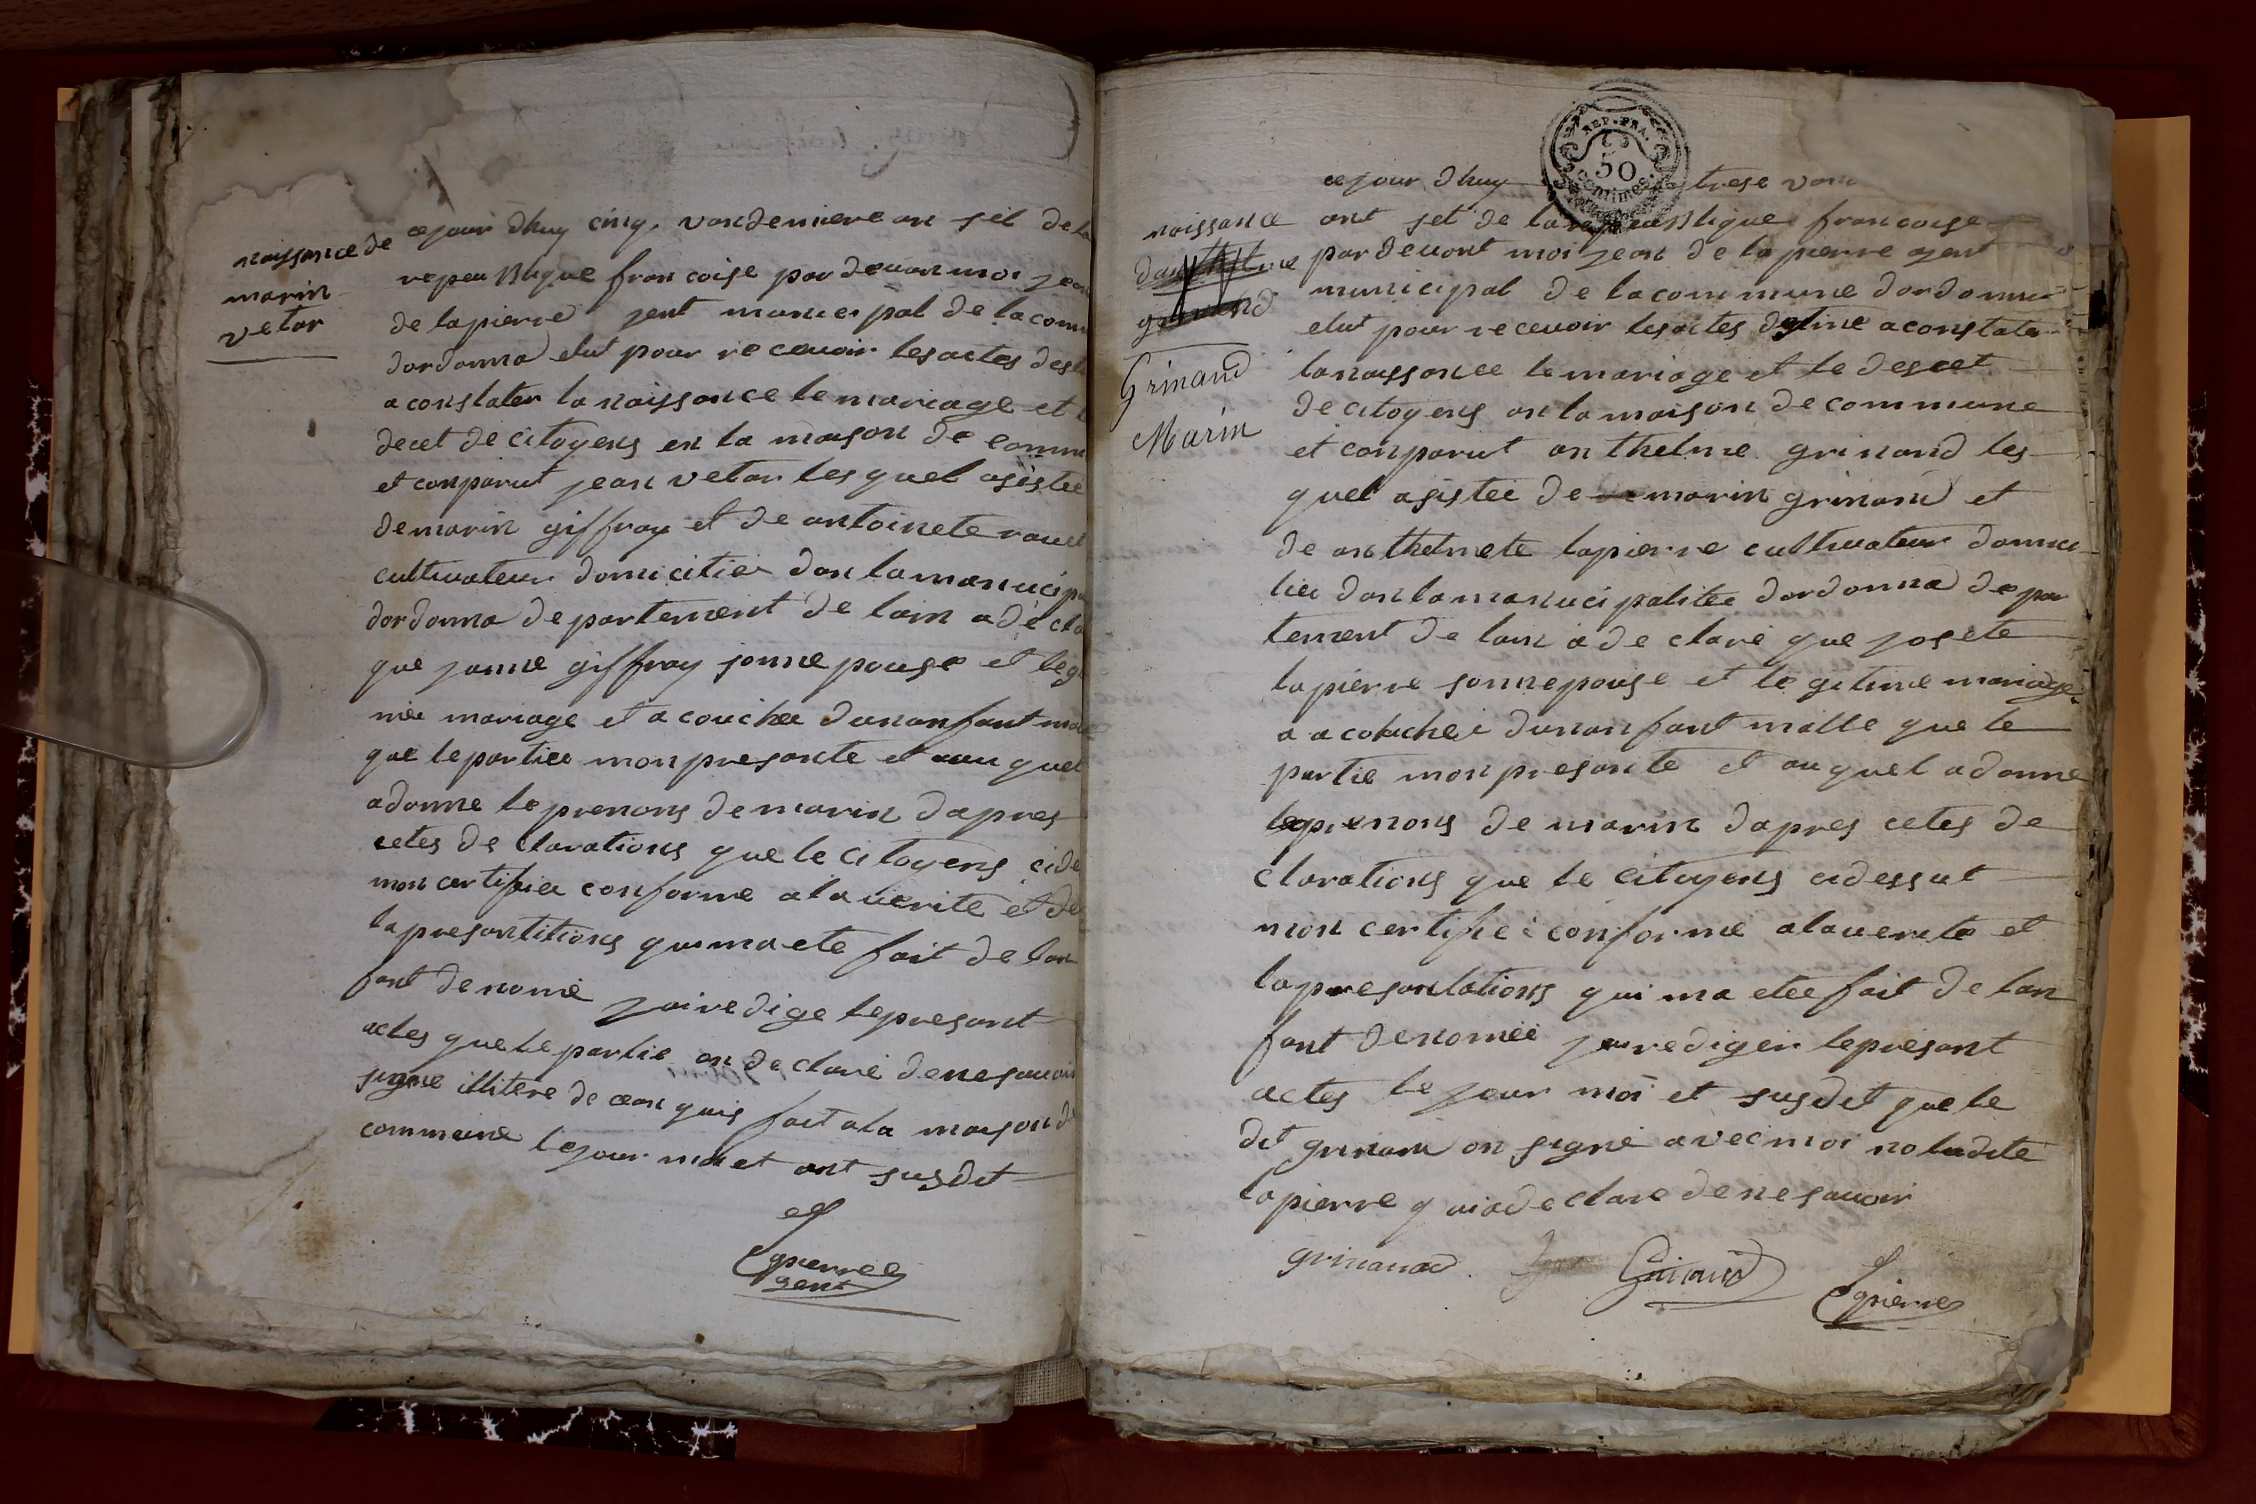 naissance de
marin
vetar
ce jour dhuy cinq vandemiere an set de la
repeu blique francoise par devan moi jean
de lapierre jent municipal de la comm
dordonna elut pour re cevoir les actes des
a constater la naissance le mariage et
decet de citoyens en la maison de comm
et conparut jean vetar les quel asistee
de marin giffray et de antoinete
cultivateur domicitier dan la manucip
dordonna de partement de lain a de cla
que janne giffray sonne pouse et leg
mariage et a couchee dunanfant
que le partiee mon presante et au quel
a donne le prenons de marin dapres
cetes de clarations que le citoyens cide
mon certifiee conforme a la verite et de
la presantitions qui ma ete fait de lan
fant de nomé jai redige le presant
actes que le partie on de claré de ne savoir
signe illitere de cean quis fait a la mayson de
commune le jour moi et ant susdit
Lapierre
gent
REP. FRA.
50
centimes
naissance
grinand
Grinand
Marin
ce jour dhuy trese van
ant set de la repeu blique francoise
par devant moi jean de la pierre ajent
municipal de la commune dordonna
elut pour re cevoir les actes a constater
la naissance le mariage et le descet
de citoyens an la maison de commune
et conparut anthelme grinand les
quel asistée de marin grinand et
de anthelmete lapierre cultivateur domici
lier dan la manucipalitee dordonna de par
tement de lain a de claré que josete
lapierre sonne pouse et le gitime mariage
a acouchei dunanfant malle que le
partie mon presante et auquel a donne
le prenons de marin dapres cetes de
clarations que le citoyens cidessut
mon certifie conforme a la verite et
la presantations qui ma etee fait de lan
fant denomée jai redigeir le presant
actes le jour moi et susdit que le
dit grinand on signé avec moi no ladite
lapierre qui a de clare de ne savoir
grinanad
Grinand
Lapierre